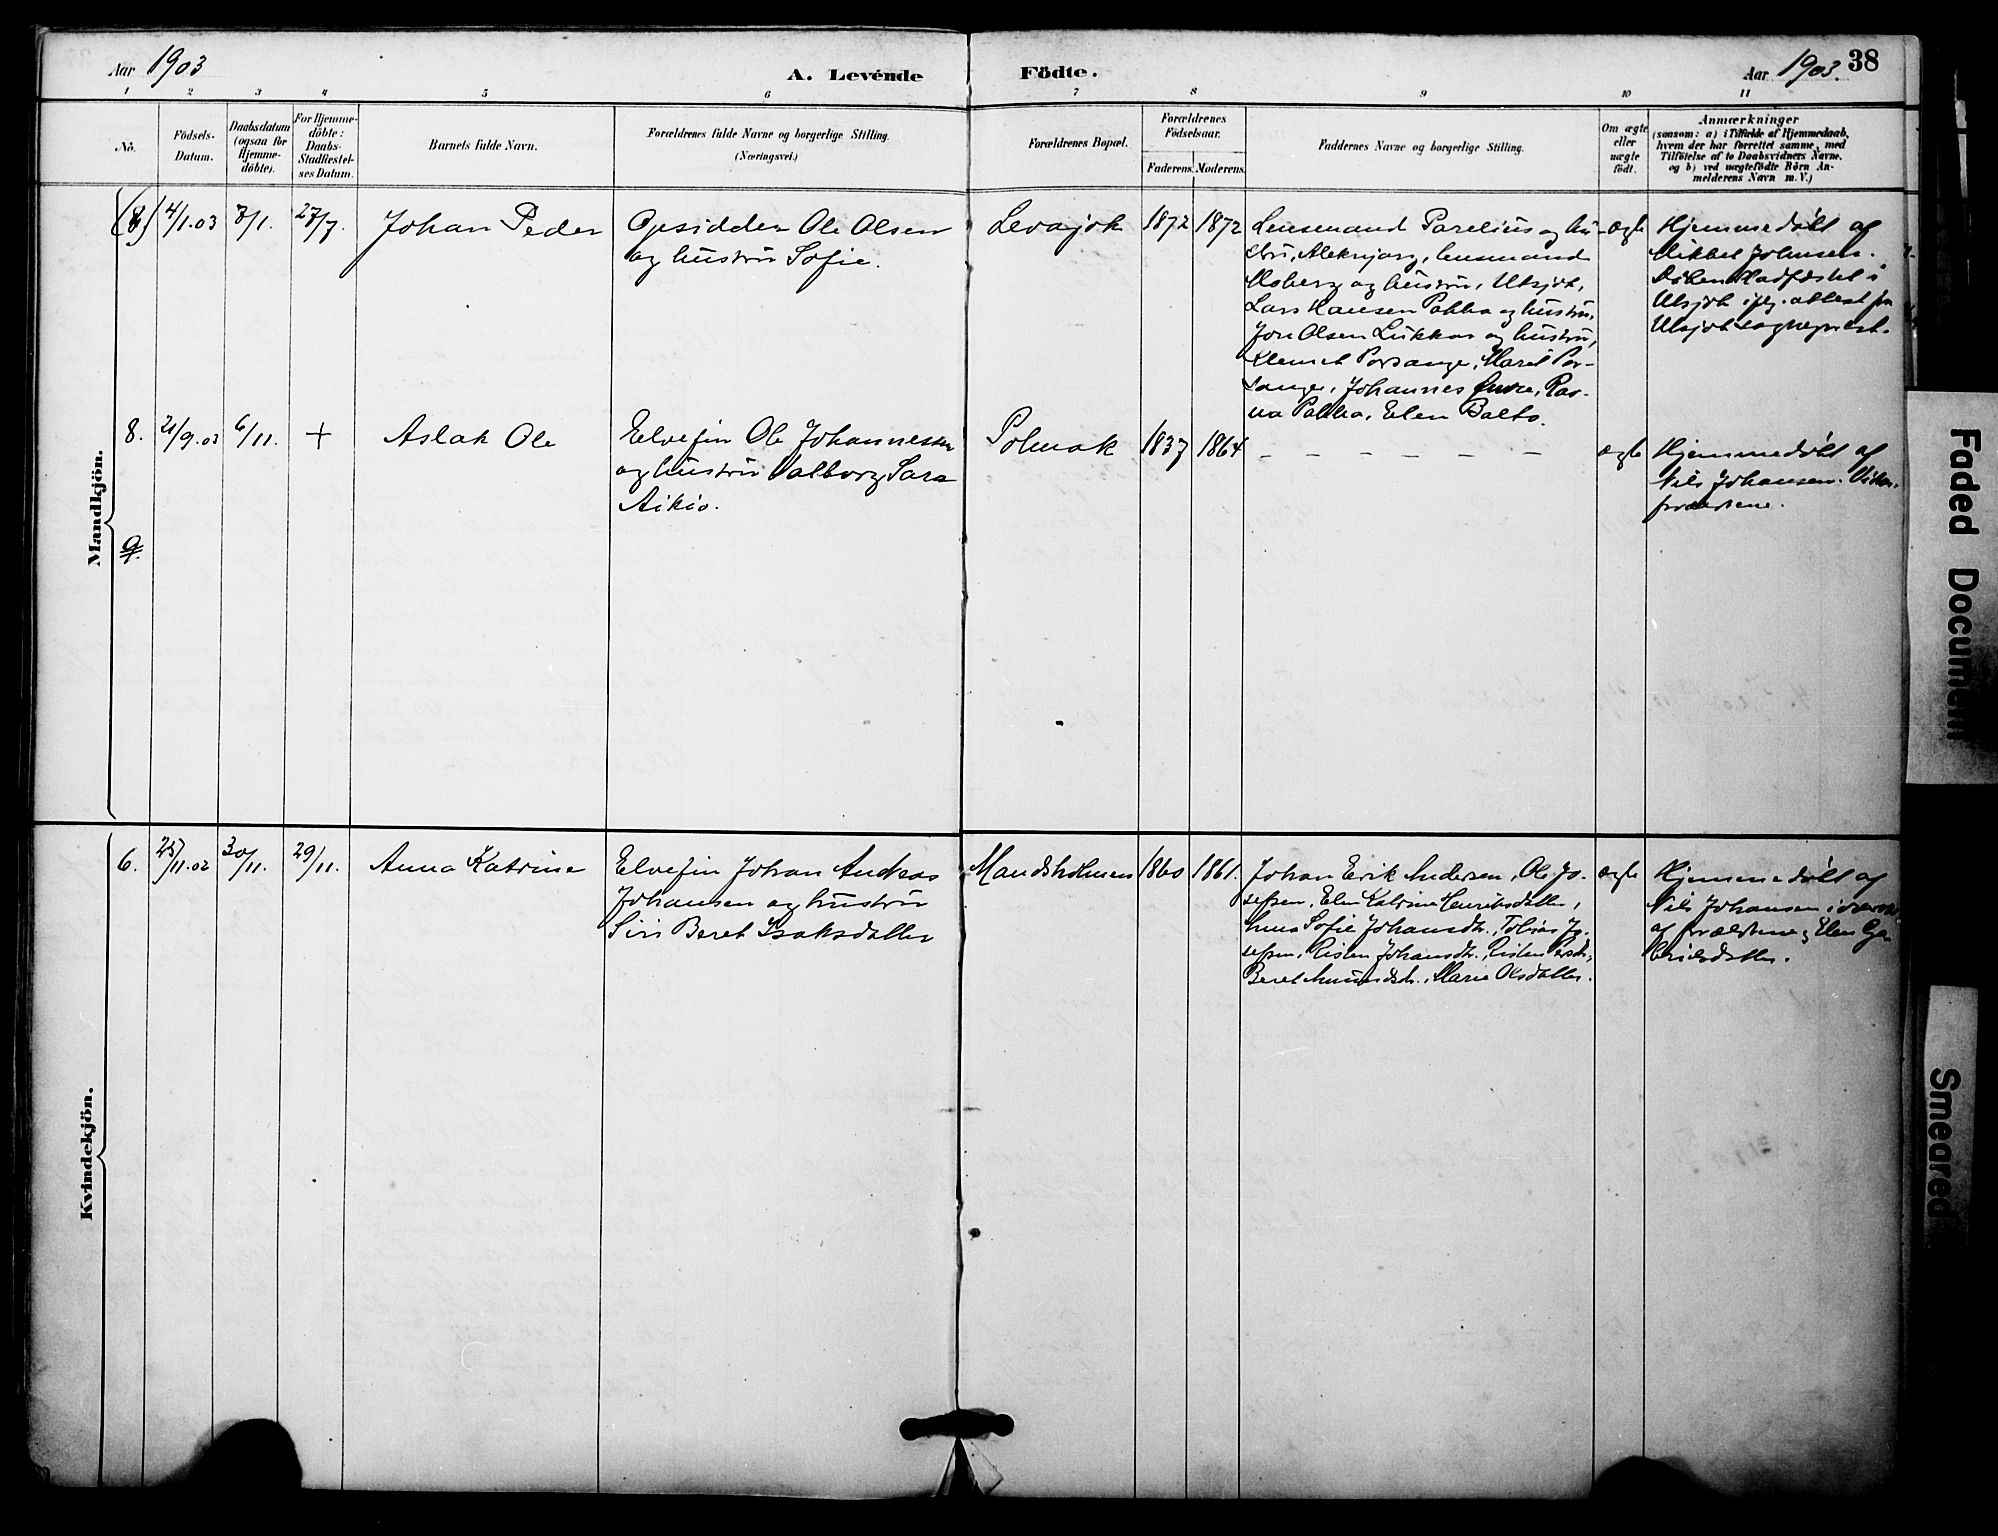 Aar 1903
A. Levende
Födte.
Aar 1903. 38
1 2 3 4 5 6 7 8 9 10 11
No.
Födsels-
Datum.
Daabsdatum
(ogsaa for
Hjemme-
döbte).
For Hjemme-
döbte:
Daabs-
Stadfæstel-
ses Datum.
Barnets fulde Navn.
Forældrenes fulde Navne og borgerlige Stilling.
(Næringsvei.)
Forældrenes Bopæl.
Forældrenes
Födselsaar.
Faderens.
Moderens.
Faddernes Navne og borgerlige Stilling.
Om ægte
eller
uægte
födt.
Anmærkninger
(saasom: a) i Tilfælde af Hjemmedaab,
hvem der har forrettet samme, med
Tilföielse af to Daabsvidners Navne,
og b) ved uægtefödte Börn An-
melderens Navn m. V.)
Mandkjön.
(8) 4/1.03 7/1. 27/7. Johan Peder
Opsidder Ole Olsen
og hustru Sofie.
Levajok 1872 1872
Lensmand Parelius og hu-
stru, , lensmand
Moberg og hustru, Utsjok,
Lars Hansen Pokka og hustru,
Jon Olsen Lukkar og hustru,
Klemet Porsanger, Marit Por-
sanger, Johannes , Rav-
na Pokka, Elen Balto.
ægte
Hjemmedøbt af
Mikkel Johnsen.
Dåben stadfæstet i
Utsjok ifg. attest fra
Utsjok sogneprest.
8. 21/9.03 6/11. + Aslak Ole
Elvefin Ole Johannesen
og hustru Valborg Sara
Aikio.
Polmak 1837 1864 - - - - - -
ægte
Hjemmedøbt af
Nils Johansen. Vidner
forældrene.
9.
Kvindekjön.
6. 25/11.02 30/11. 29/11. Anna Katrine
Elvefin Johan Andreas
Johansen og hustru
Siri Beret Isaksdatter
Mandsholmen 1860 1861.
Johan Erik Andersen, Ole Jo-
sefsen, Elen Katrine Henriksdatter,
Anna Sofie Johansdtr., Tobias Jo-
sefsen, Risten Johansdtr., Risten Persdtr.,
Beret Amundsdtr., Marie Olsdatter.
ægte
Hjemmedøbt af
Nils Johansen i overvær
af forældrene og Elen Ga-
brielsdatter.
Faded Document
Smeared